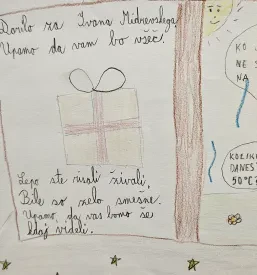 Darilo za Ivana Midrevslega.
Upamo da vam bo všeč.
Lepo ste risali živali,
Bile so zelo smešne.
Upamo, da vas bomo še
kdaj videli.
KO
NE S
NA
KOLIK
DANES
50°C?